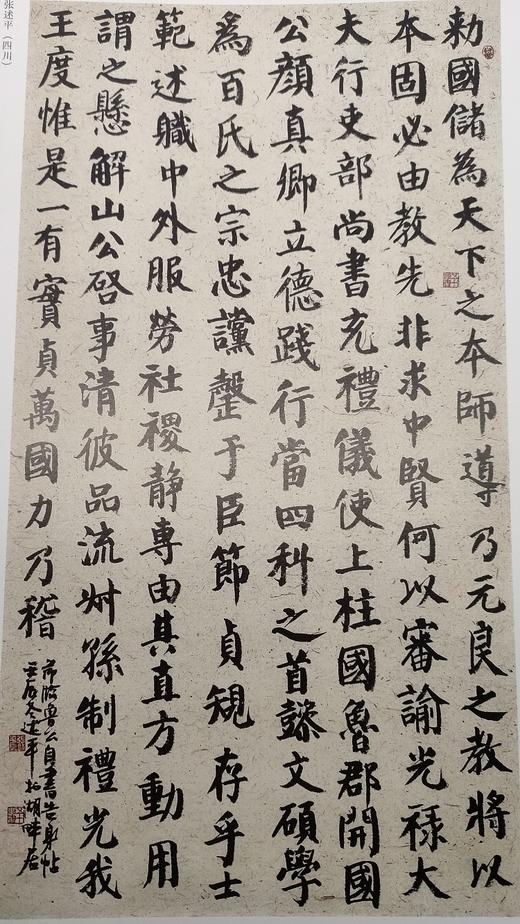 张述平（四川）
勅國儲為天下之本師導乃元良之教將以
本固必由教先非求中賢何以審諭光祿大
夫行吏部尚書充禮儀使上柱國魯郡開國
公顏真卿立德踐行當四科之首懿文碩學
為百氏之宗忠讜罄于臣節貞規存乎士
範述職中外服勞社稷静專由其直方動用
謂之懸解山公啓事清彼品流州孫制禮光我
王度惟是一有實貞萬國力乃稽
節臨魯公自書告身帖
壬辰冬述平於湖畔居